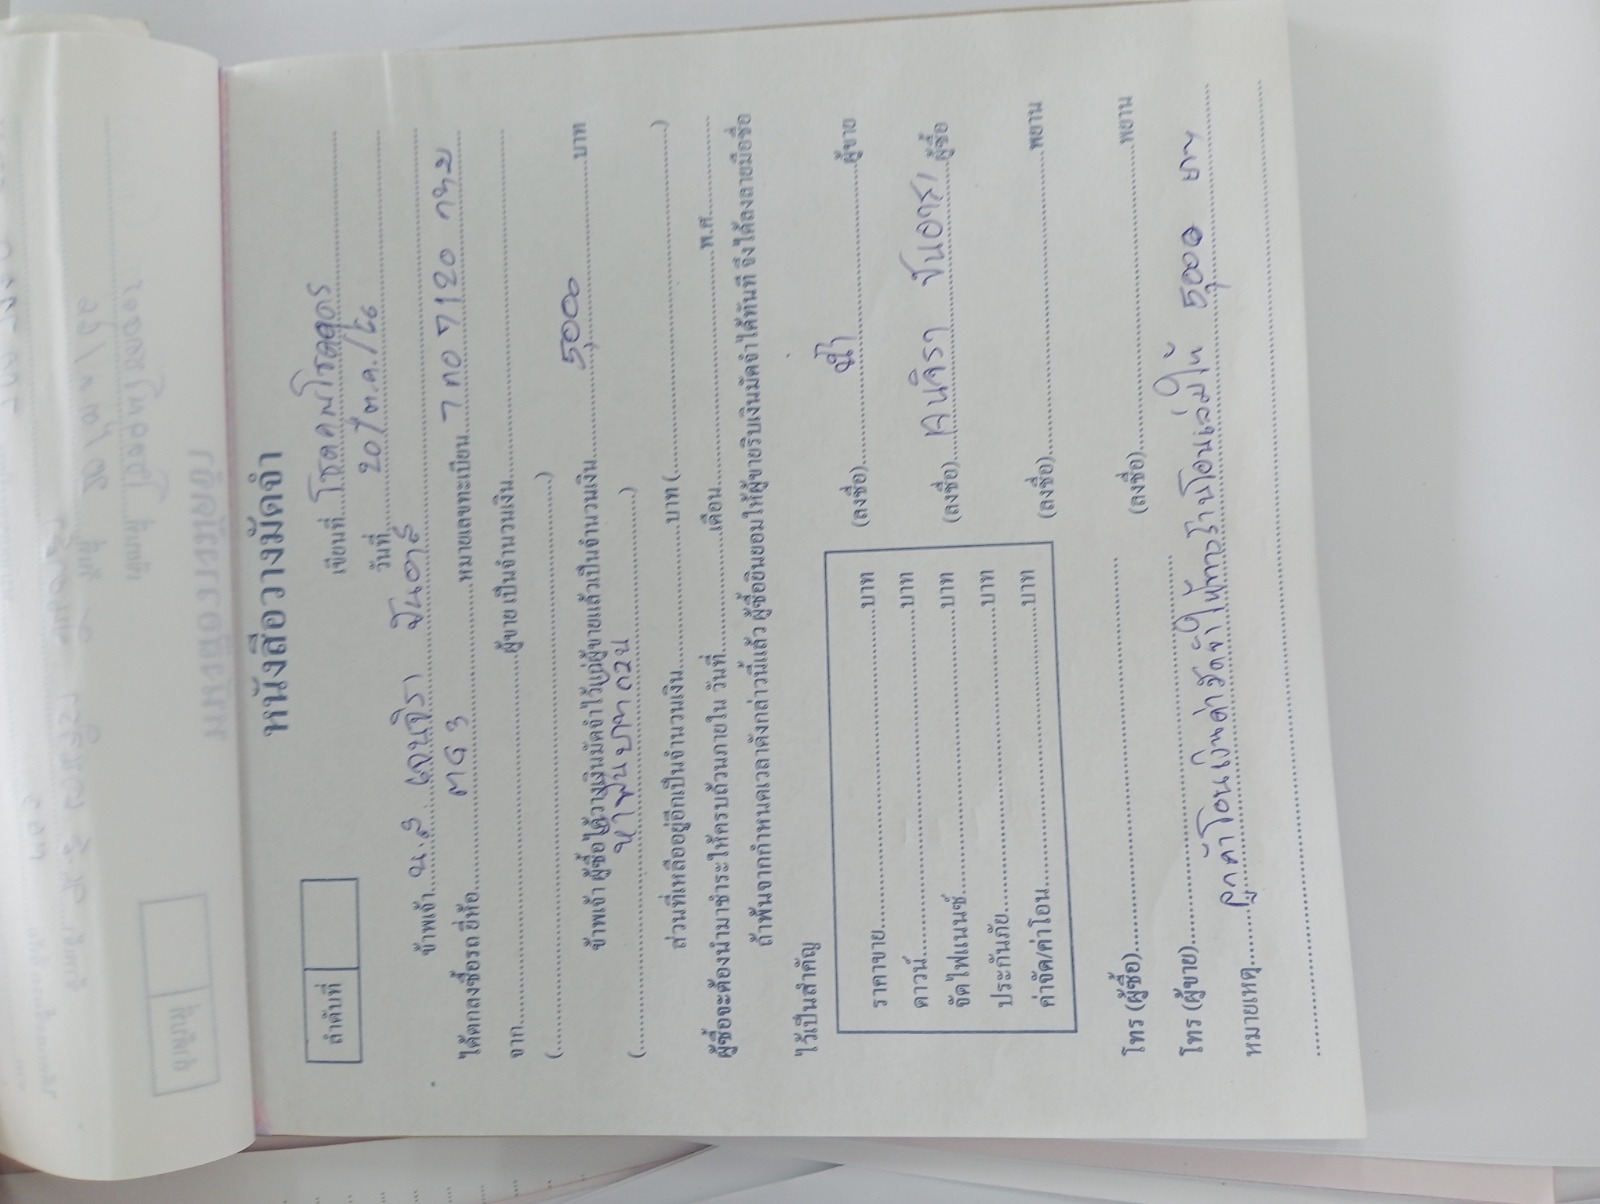 หนังสือวางมัดจำ
ลำดับที่
เขียนที่ โชคคูณโชคคูณ
วันที่ 20/ต.ค./66
ข้าพเจ้า น.ส
ได้ตกลงซื้อรถ ยี่ห้อ หมายเลขทะเบียน 7120 กทม
จาก ผู้ขาย เป็นจำนวนเงิน
( )
ข้าพเจ้า ผู้ซื้อได้วางเงินมัดจำไว้แก่ผู้ขายแล้วเป็นจำนวนเงิน 5,000 บาท
( ห้าพันบาทถ้วน )
ส่วนที่เหลืออยู่อีกเป็นจำนวนเงิน บาท ( )
ผู้ซื้อจะต้องนำมาชำระให้ครบถ้วนภายใน วันที่ เดือน พ.ศ.
ถ้าพ้นจากกำหนดเวลาดังกล่าวนี้แล้ว ผู้ซื้อยินยอมให้ผู้ขายริบเงินมัดจำได้ทันที จึงได้ลงลายมือชื่อ
ไว้เป็นสำคัญ
ราคาขาย บาท
ดาวน์ บาท
จัดไฟแนนซ์ บาท
ประกันภัย บาท
ค่าจัด/ค่าโอน บาท
(ลงชื่อ) ผู้ขาย
(ลงชื่อ) ผู้ซื้อ
(ลงชื่อ) พยาน
(ลงชื่อ) พยาน
โทร (ผู้ซื้อ)
โทร (ผู้ขาย)
หมายเหตุ ลูกค้าโอนเงินค่ามัดจำให้ทางร้านโอนเล่มให้ 5,000 บาท